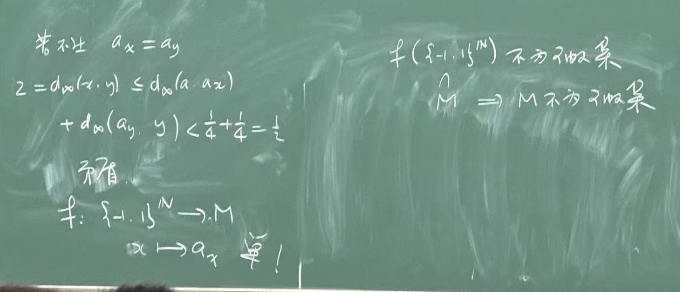 若不然 a_x = a_y
2 = d_∞(x, y) ≤ d_∞(a, a_x)
+ d_∞(a_y, y) < 1/4 + 1/4 = 1/2
矛盾.
f: {-1, 1}^ℕ → M
x ↦ a_x 单!
f({-1, 1}^ℕ) 不为可数集
∩
M ⇒ M 不为可数集